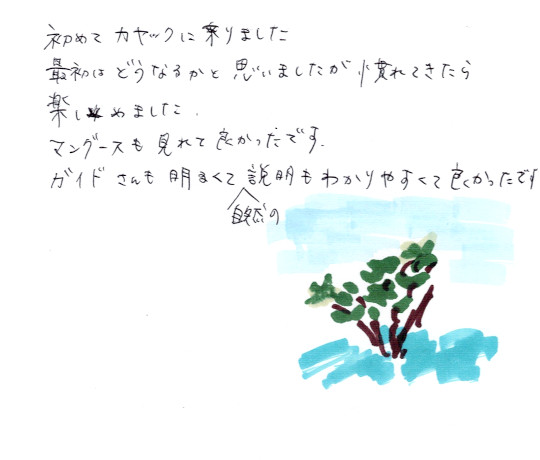 初めてカヤックに乗りました
最初はどうなるかと思いましたが慣れてきたら
楽しめました.
マングースも見れて良かったです.
ガイドさんも明るくて自然の説明もわかりやすくて良かったです